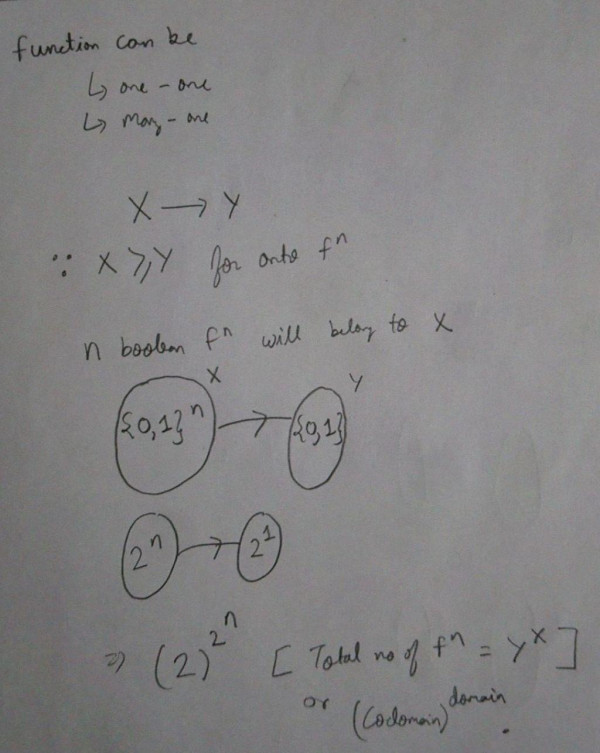 function can be
↳ one - one
↳ many - one
X → Y
∵ X ⩾ Y for onto fⁿ
n boolean fⁿ will belong to X
X Y
{0,1}ⁿ → {0,1}
2ⁿ → 2¹
⇒ (2)^2^n [ Total no of fⁿ = Y^X ]
or (Codomain)^domain .